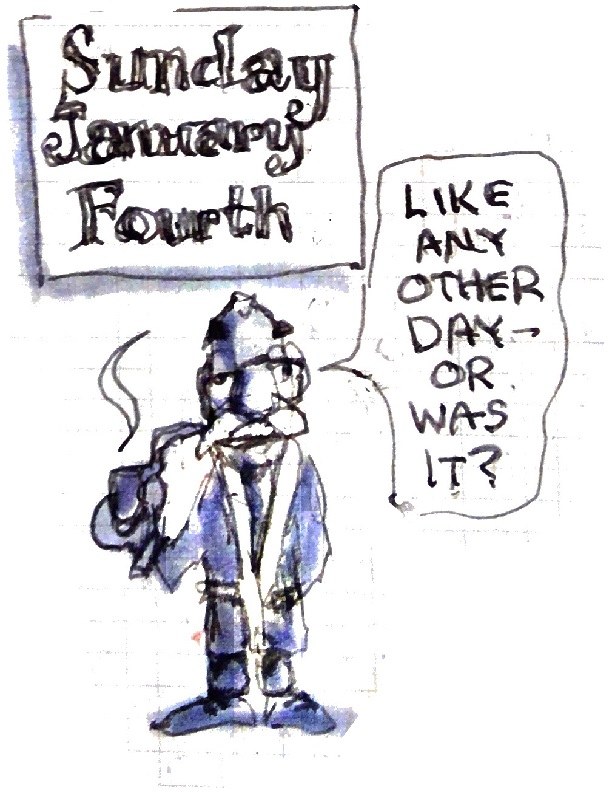 Sunday
January
Fourth
LIKE
ANY
OTHER
DAY-
OR
WAS
IT?